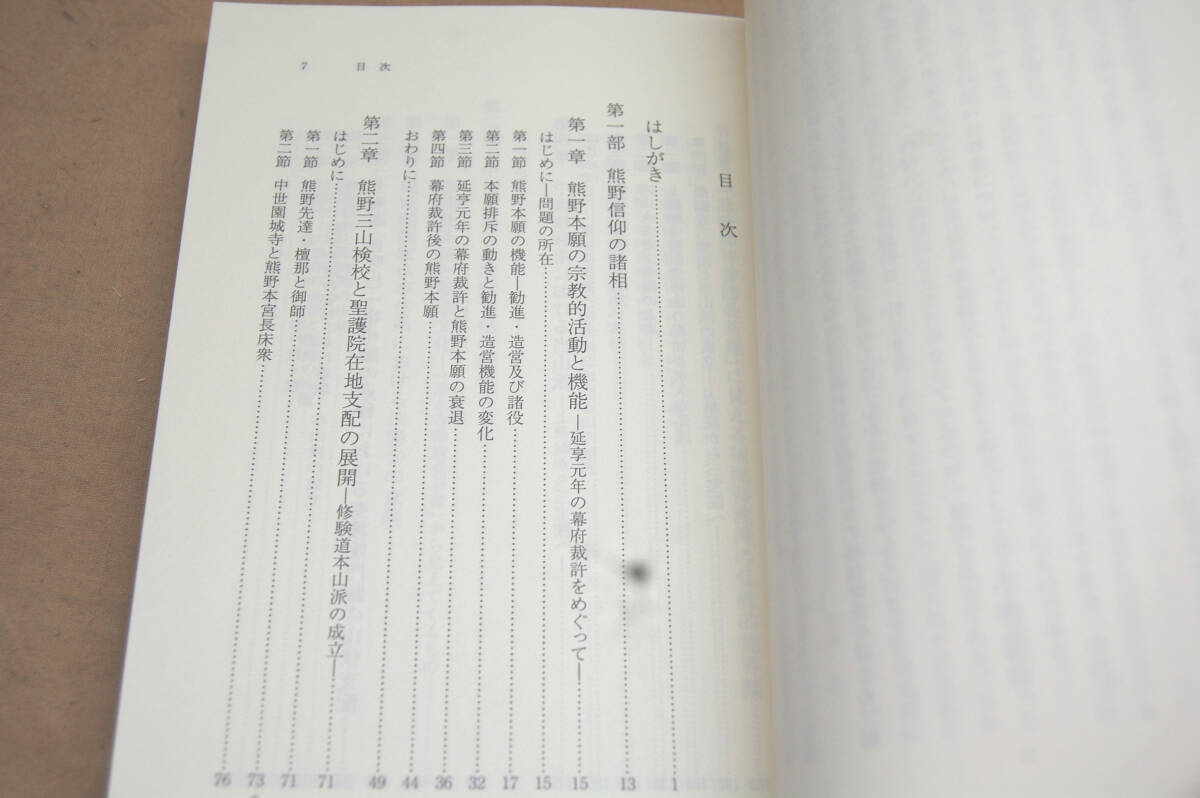 7 目次
目次
はしがき……1
第一部 熊野信仰の諸相……13
第一章 熊野本願の宗教的活動と機能―延享元年の幕府裁許をめぐって―……15
はじめに―問題の所在……15
第一節 熊野本願の機能―勧進・造営及び諸役……17
第二節 本願排斥の動きと勧進・造営機能の変化……32
第三節 延享元年の幕府裁許と熊野本願の衰退……36
第四節 幕府裁許後の熊野本願……44
おわりに……49
第二章 熊野三山検校と聖護院在地支配の展開―修験道本山派の成立―……71
はじめに……71
第一節 熊野先達・檀那と御師……73
第二節 中世園城寺と熊野本宮長床衆……76